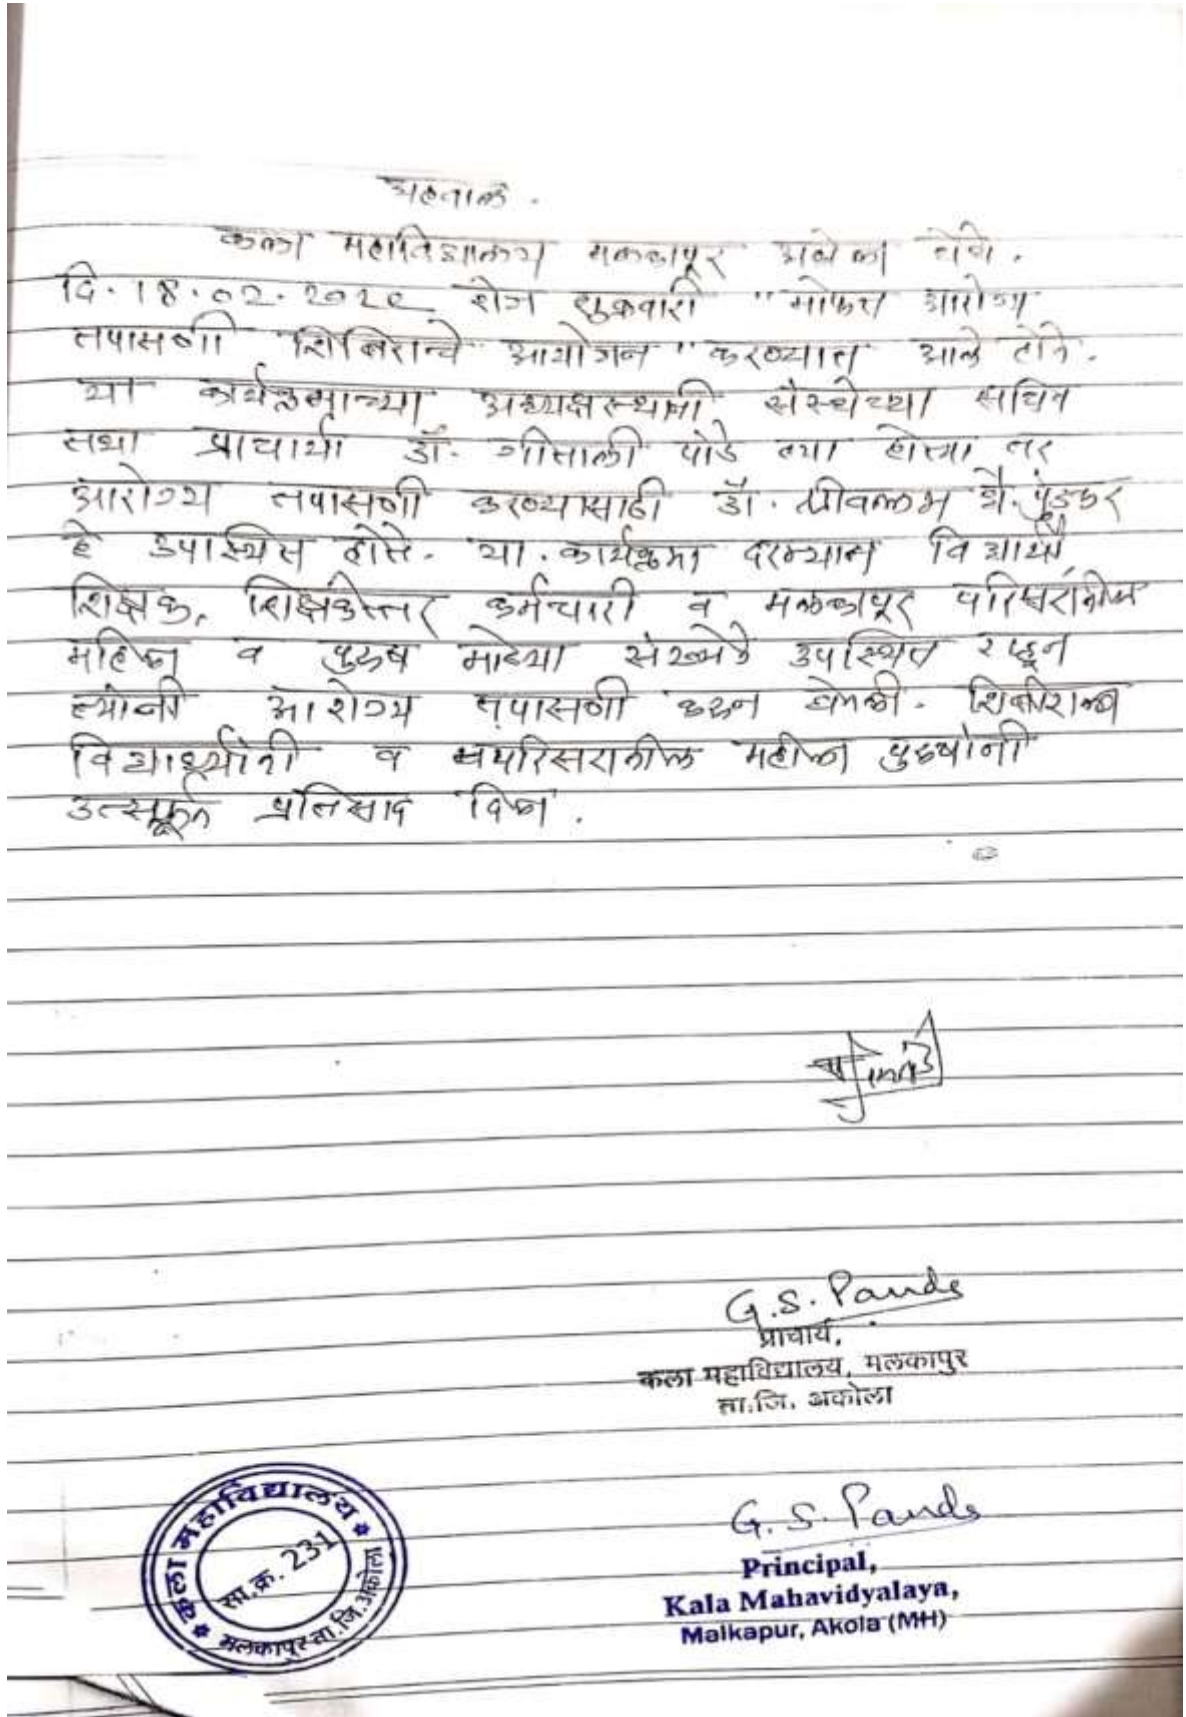 अहवाल.
कला महाविद्यालय मलकापूर अकोला येथे.
दि. 18.02.202 रोज शुक्रवारी "मोफत आरोग्य
तपासणी शिबिराचे आयोजन" करण्यात आले होते.
या कार्यक्रमाच्या अध्यक्षस्थानी संस्थेच्या सचिव
तथा प्राचार्या डॉ. गीताली पांडे ह्या होत्या तर
आरोग्य तपासणी करण्यासाठी डॉ. श्रीवल्लभ पुंडकर
हे उपास्थित होते. या. कार्यक्रमा दरम्यान विद्यार्थी,
शिक्षक, शिक्षकेत्तर कर्मचारी व मलकापूर परिसरातील
महिला व पुरुष मोठ्या संख्येने उपस्थित राहून
त्यांनी आरोग्य तपासणी करून घेतली. शिबीराला
विद्यार्थ्यांनी व परिसरातील महीला पुरुषांनी
उत्स्फूर्त प्रतिसाद दिला.
G. S. Pande
प्राचार्य,
कला महाविद्यालय, मलकापुर
ता.जि. अकोला
कला महाविद्यालय
ता.क्र. 231
मलकापुर ता.जि.अकोला
G. S. Pande
Principal,
Kala Mahavidyalaya,
Malkapur, Akola (MH)